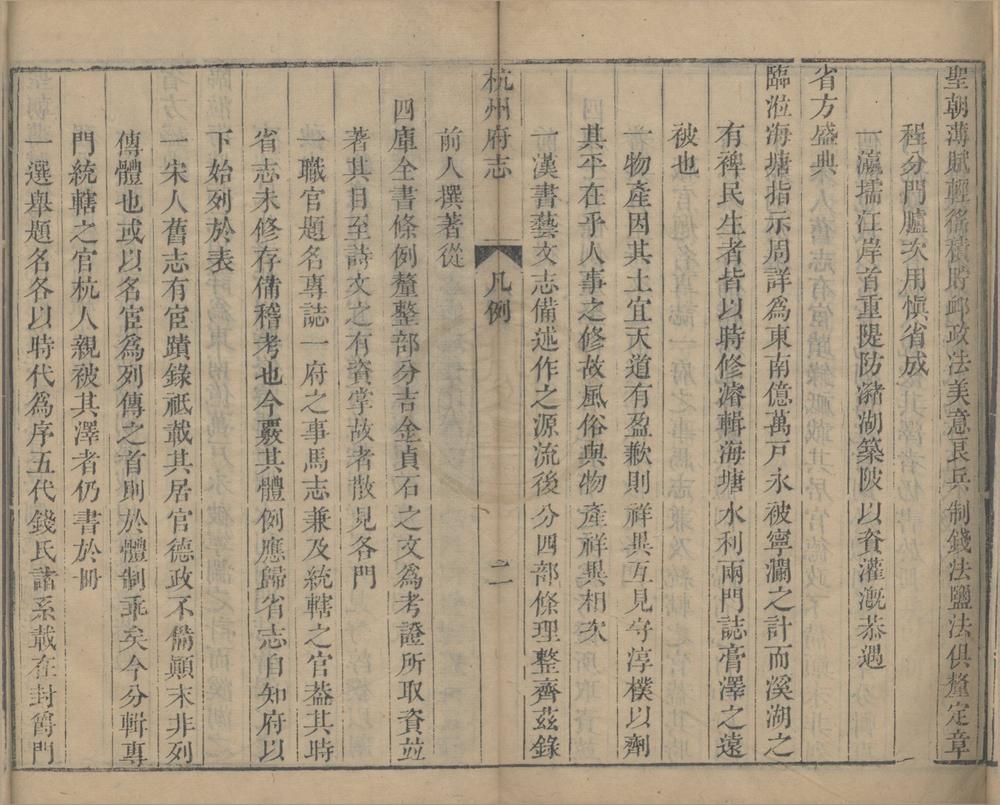 聖朝薄賦輕徭積貯郵政法美意良兵制錢法鹽法俱釐定章
程分門臚次用愼省成
一瀛壖江岸首重隄防瀦湖築陂以資灌漑恭遇
省方盛典
臨涖海塘指示周詳爲東南億萬戸永被寧瀾之計而溪湖之
有裨民生者皆以時修濬輯海塘水利兩門誌膏澤之遠
被也
一物產因其土宜天道有盈歉則祥異互見守淳樸以劑
其平在乎人事之修故風俗與物產祥異相次
一漢書藝文志備述作之源流後分四部條理整齊茲錄
杭州府志
凡例
二
前人撰著從
四庫全書條例釐整部分吉金貞石之文爲考證所取資並
著其目至詩文之有資掌故者散見各門
一職官題名專誌一府之事馬志兼及統轄之官葢其時
省志未修存備稽考也今覈其體例應歸省志自知府以
下始列於表
一宋人舊志有宦蹟錄祇載其居官德政不備顚末非列
傳體也或以名宦爲列傳之首則於體制乖矣今分輯專
門統轄之官杭人親被其澤者仍書於冊
一選舉題名各以時代爲序五代錢氏諸系載在封爵門